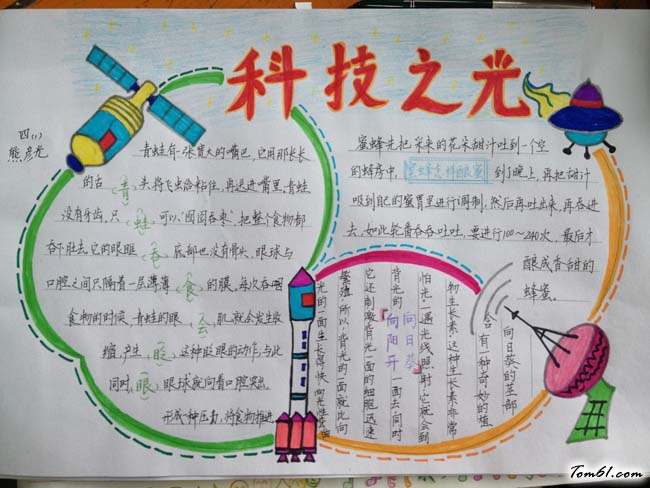 科技之光
四(1)
熊彦光
青蛙有一张宽大的嘴巴，它用那长长
的舌头将飞虫给粘住，再送进嘴里，青蛙
没有牙齿，只可以“囫囵吞枣”把整个食物都
吞下肚去，它的眼眶底部也没有骨头，眼球与
口腔之间只隔着一层薄薄的膜，每次吞咽
食物的时候，青蛙的眼肌就会发生收
缩，产生眨这种眨眼的动作，与此
同时，眼球就向着口腔突出，
形成一种压力，将食物推进
青
蛙
吞
食
会
眨
眼
蜜蜂先把采来的花朵甜汁吐到一个空
的蜂房中，到了晚上，再把甜汁
蜜蜂怎样酿蜜
吸到自己的蜜胃里进行调制，然后再吐出来，再吞进
去，如此轮番吞吞吐吐，要进行100~240次，最后才
酿成香甜的
蜂蜜。
向日葵的茎部
含有一种奇妙的植
物生长素，这种生长素非常
怕光，一遇光线照射，它就会到
背光的一面去，同时
向日葵
向阳开
它还刺激背光一面的细胞迅速
繁殖，所以，背光的一面就比向
光的一面生长得快
Tom61.com